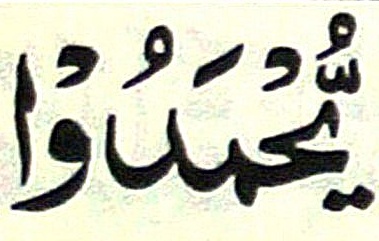 يُّحْمَدُوْا